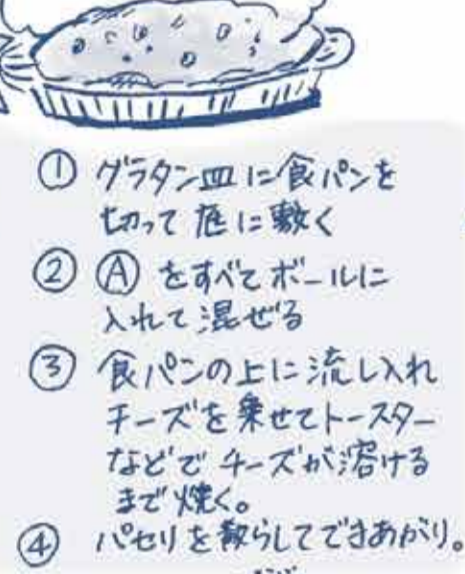 ① グラタン皿に食パンを
切って底に敷く
② Ⓐ をすべてボールに
入れて混ぜる
③ 食パンの上に流し入れ
チーズを乗せてトースター
などで チーズが溶ける
まで焼く。
④ パセリを散らしてできあがり。